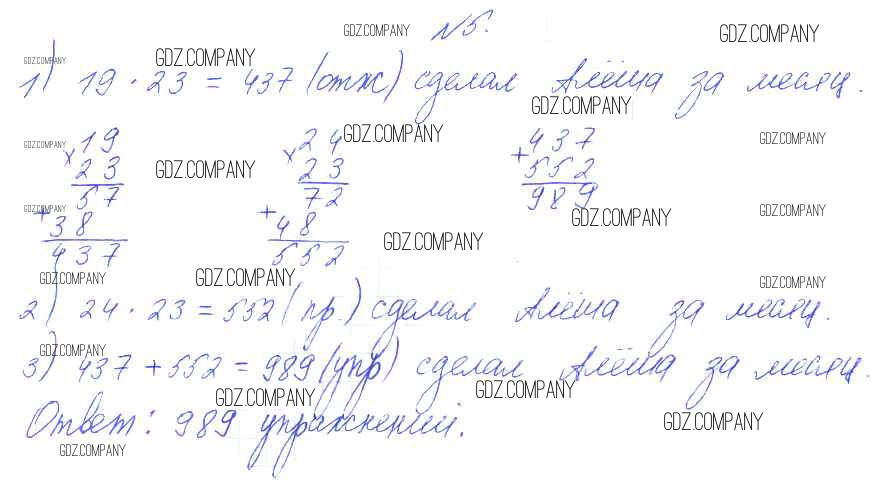 №5.
GDZ.COMPANY GDZ.COMPANY
GDZ.COMPANY GDZ.COMPANY
1) 19 · 23 = 437 (отж) сделал Алёша за месяц.
GDZ.COMPANY
19 24 437
× 23 × 23 + 552
57 72 989
+ 38 + 48
437 552
GDZ.COMPANY GDZ.COMPANY GDZ.COMPANY
GDZ.COMPANY
GDZ.COMPANY GDZ.COMPANY GDZ.COMPANY
GDZ.COMPANY
GDZ.COMPANY GDZ.COMPANY GDZ.COMPANY
2) 24 · 23 = 552 (пр.) сделал Алёша за месяц.
GDZ.COMPANY
3) 437 + 552 = 989 (упр) сделал Алёша за месяц.
GDZ.COMPANY GDZ.COMPANY
Ответ: 989 упражнений.
GDZ.COMPANY
GDZ.COMPANY